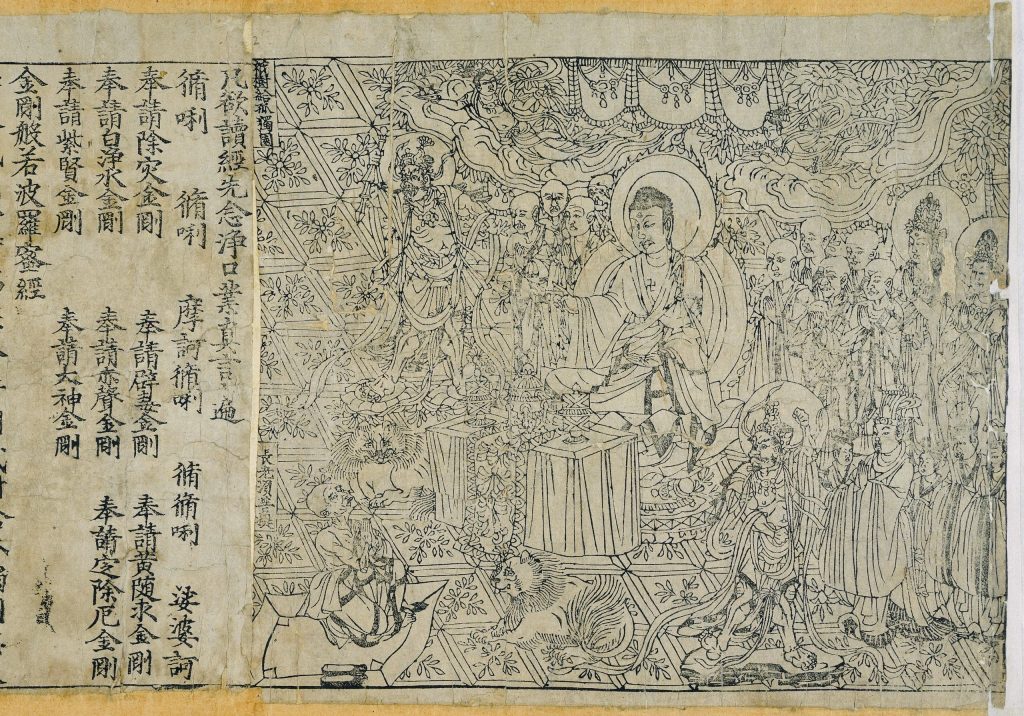 祇樹給孤獨園
長老須菩提
凡欲讀經先念浄口業真言 遍
脩唎 脩唎 摩訶脩唎 脩脩唎 娑婆訶
奉請除灾金剛 奉請辟毒金剛 奉請黃随求金剛
奉請白浄水金剛 奉請赤聲金剛 奉請定除厄金剛
奉請紫賢金剛 奉請大神金剛
金剛般若波羅蜜經